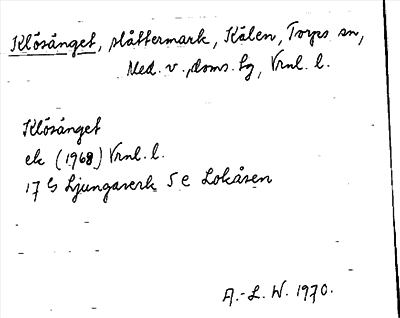 Klösänget, slåttermark, Kälen, Torps sn,
Med. v. doms. tg, Vrnl. l.
Klösänget
ek (1968) Vrnl. l.
17 G Ljungaverk 5 e Lokåsen
A.-L. W. 1970.